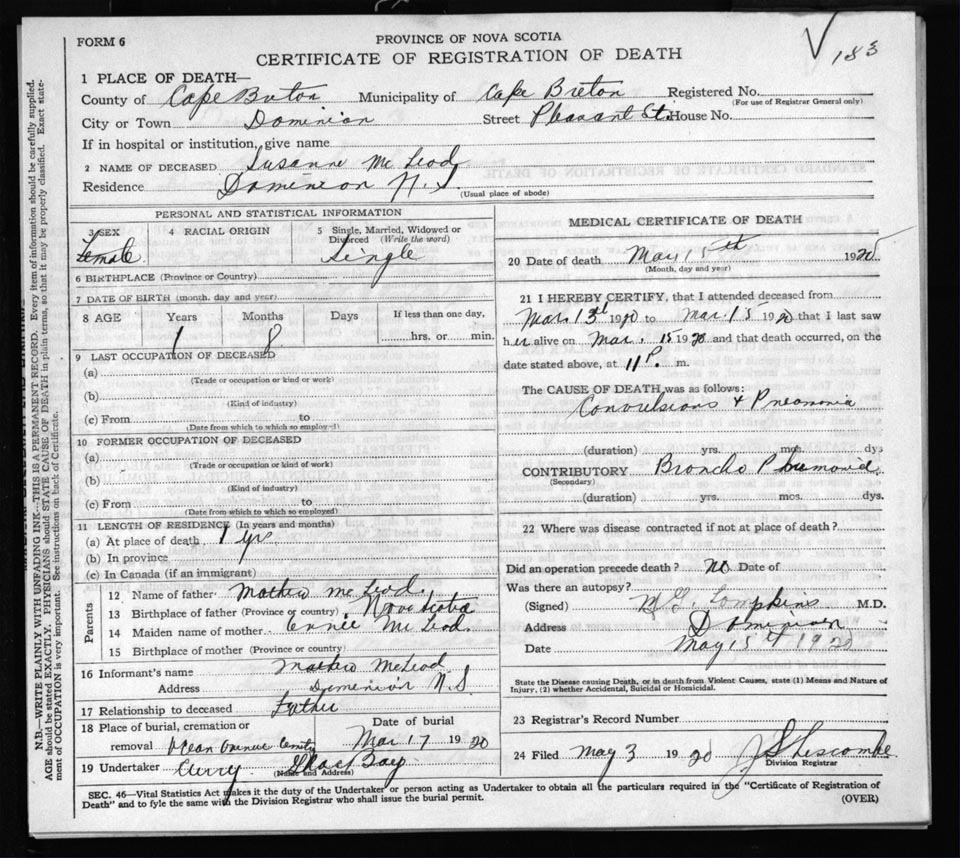 FORM 6
PROVINCE OF NOVA SCOTIA
CERTIFICATE OF REGISTRATION OF DEATH
183
1 PLACE OF DEATH—
County of Cape Breton Municipality of Cape Breton Registered No.
(For use of Registrar General only)
City or Town Dominion Street Pleasant St. House No.
If in hospital or institution, give name
2 NAME OF DECEASED Susanne Mc Leod
Residence Dominion N.S.
(Usual place of abode)
PERSONAL AND STATISTICAL INFORMATION
3 SEX 4 RACIAL ORIGIN 5 Single, Married, Widowed or Divorced (Write the word)
Female Single
6 BIRTHPLACE (Province or Country)
7 DATE OF BIRTH (month, day and year)
8 AGE Years Months Days If less than one day,
1 8 hrs. or min.
9 LAST OCCUPATION OF DECEASED
(a)
(Trade or occupation or kind or work)
(b)
(Kind of industry)
(c) From to
(Date from which to so employed)
10 FORMER OCCUPATION OF DECEASED
(a)
(Trade or occupation or kind of work)
(b)
(Kind of industry)
(c) From to
(Date from which to so employed)
11 LENGTH OF RESIDENCE (In years and months)
(a) At place of death 1 yr
(b) In province
(c) In Canada (if an immigrant)
Parents
12 Name of father Mathew Mc Leod
13 Birthplace of father (Province or country) Nova Scotia
14 Maiden name of mother Mc Leod
15 Birthplace of mother (Province or country)
16 Informant's name Mathew McLeod
Address Dominion N.S
17 Relationship to deceased Father
18 Place of burial, cremation or removal Date of burial
Mar 17 1920
19 Undertaker Curry Glace Bay
(Name and Address)
MEDICAL CERTIFICATE OF DEATH
20 Date of death Mar 15th 1920
(Month, day and year)
21 I HEREBY CERTIFY, that I attended deceased from
Mar. 13th 1920 to Mar. 15 1920 that I last saw
her alive on Mar. 15 1920 and that death occurred, on the
date stated above, at 11 P. m.
The CAUSE OF DEATH was as follows:
Convulsions & Pneamonia
(duration) yrs. mos. dys
CONTRIBUTORY Broncho
(Secondary)
(duration) yrs. mos. dys.
22 Where was disease contracted if not at place of death?
Did an operation precede death? no Date of
Was there an autopsy?
(Signed) M G Tompkins M.D.
Address Dominion
Date May 15th 1920
State the Disease causing Death, or in death from Violent Causes, state (1) Means and Nature of
Injury, (2) whether Accidental, Suicidal or Homicidal.
23 Registrar's Record Number
24 Filed May 3 1920 Liscombe
Division Registrar
SEC. 46—Vital Statistics Act makes it the duty of the Undertaker or person acting as Undertaker to obtain all the particulars required in the "Certificate of Registration of
Death" and to fyle the same with the Division Registrar who shall issue the burial permit.
(OVER)
N.B.—WRITE PLAINLY WITH UNFADING INK—THIS IS A PERMANENT RECORD. Every item of information should be carefully supplied.
AGE should be stated EXACTLY. PHYSICIANS should STATE CAUSE OF DEATH in plain terms, so that it may be properly classified. Exact state-
ment of OCCUPATION is very important. See instructions on back of Certificate.